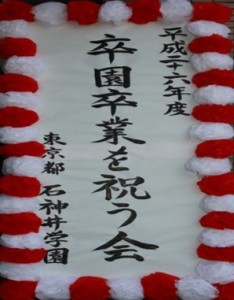 平成二十六年度
卒園卒業を祝う会
東京都 石神井学園